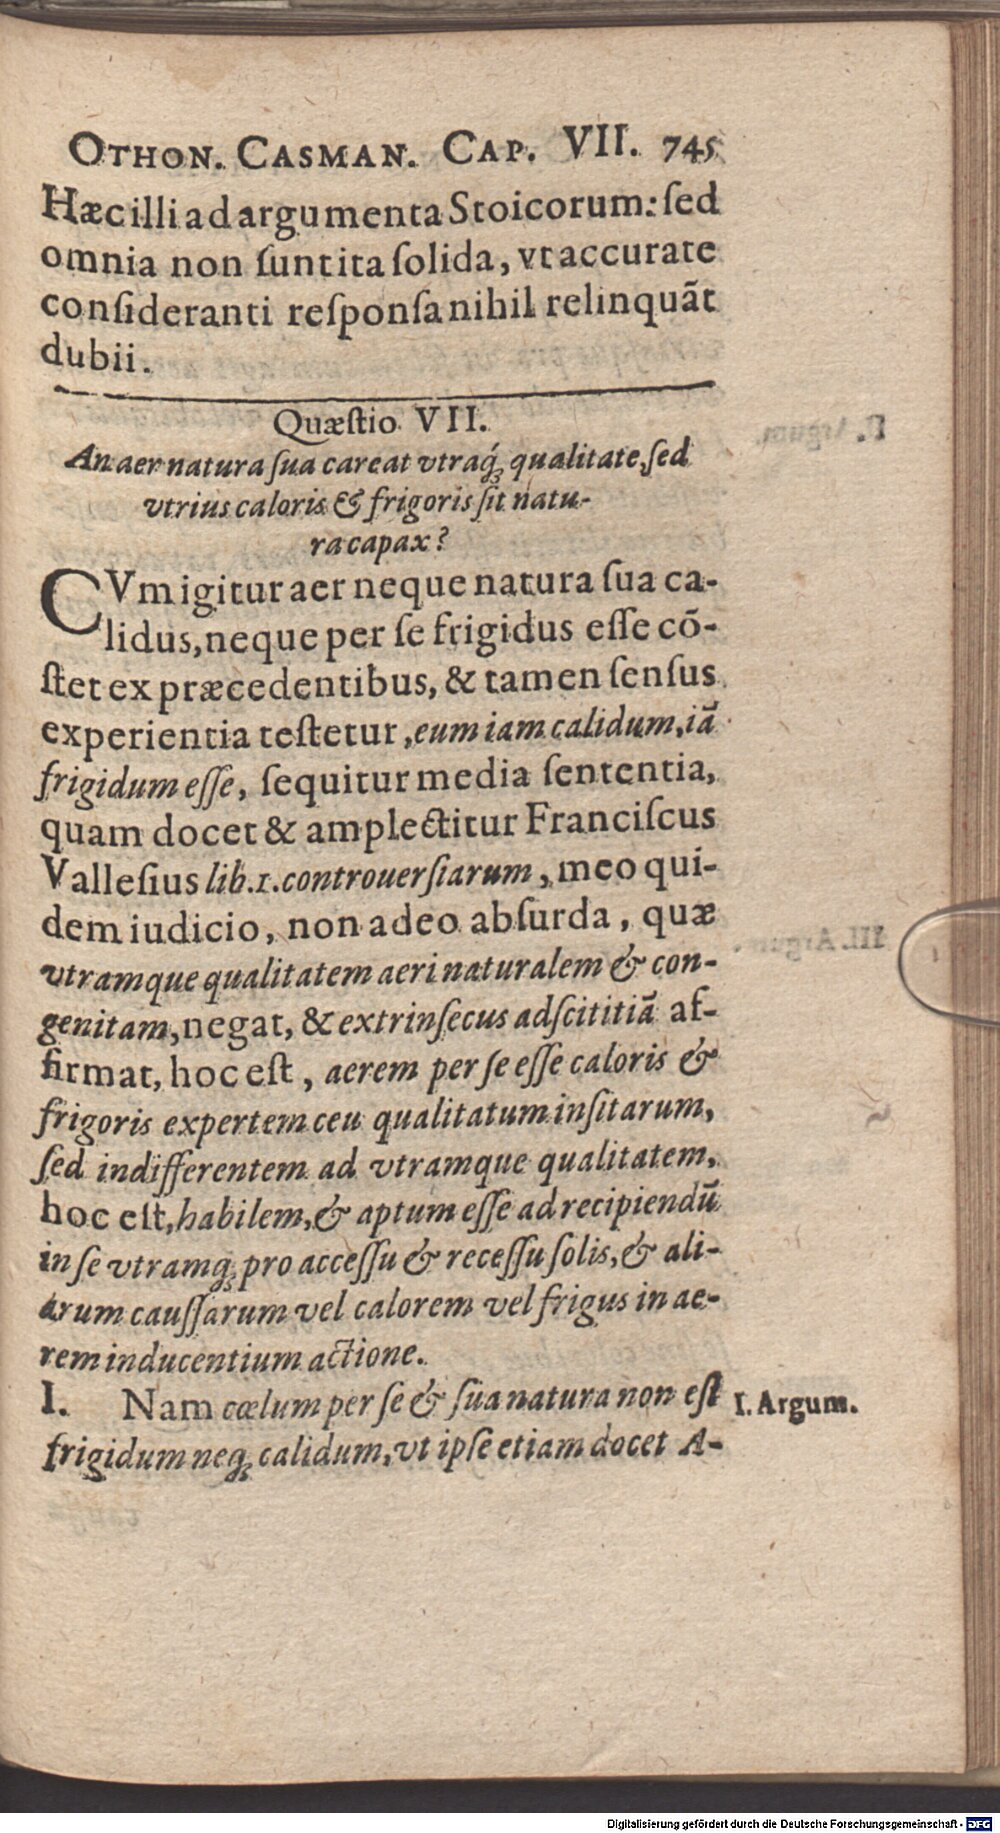 OTHON. CASMAN. CAP. VII. 745
Hæc illi ad argumenta Stoicorum: ſed
omnia non ſunt ita ſolida, vt accurate
conſideranti reſponſa nihil relinquãt
dubii.
Quæſtio VII.
An aer natura ſua careat vtraq́; qualitate, ſed
vtrius caloris & frigoris ſit natu-
ra capax?
CVm igitur aer neque natura ſua ca-
lidus, neque per ſe frigidus eſſe cõ-
ſtet ex præcedentibus, & tamen ſenſus
experientia teſtetur, eum iam calidum, iã
frigidum eſſe, ſequitur media ſententia,
quam docet & amplectitur Franciſcus
Valleſius lib. 1. controuerſiarum, meo qui-
dem iudicio, non adeo abſurda, quæ
vtramque qualitatem aeri naturalem & con-
genitam, negat, & extrinſecus adſcititiã af-
firmat, hoc eſt, aerem per ſe eſſe caloris &
frigoris expertem ceu qualitatum inſitarum,
ſed indifferentem ad vtramque qualitatem,
hoc eſt, habilem, & aptum eſſe ad recipiendũ
in ſe vtramq; pro acceſſu & receſſu ſolis, & ali-
arum cauſſarum vel calorem vel frigus in ae-
rem inducentium actione.
I. Nam cœlum per ſe & ſua natura non eſt
I. Argum.
frigidum neq; calidum, vt ipſe etiam docet A-
Digitalisierung gefördert durch die Deutsche Forschungsgemeinschaft - DFG